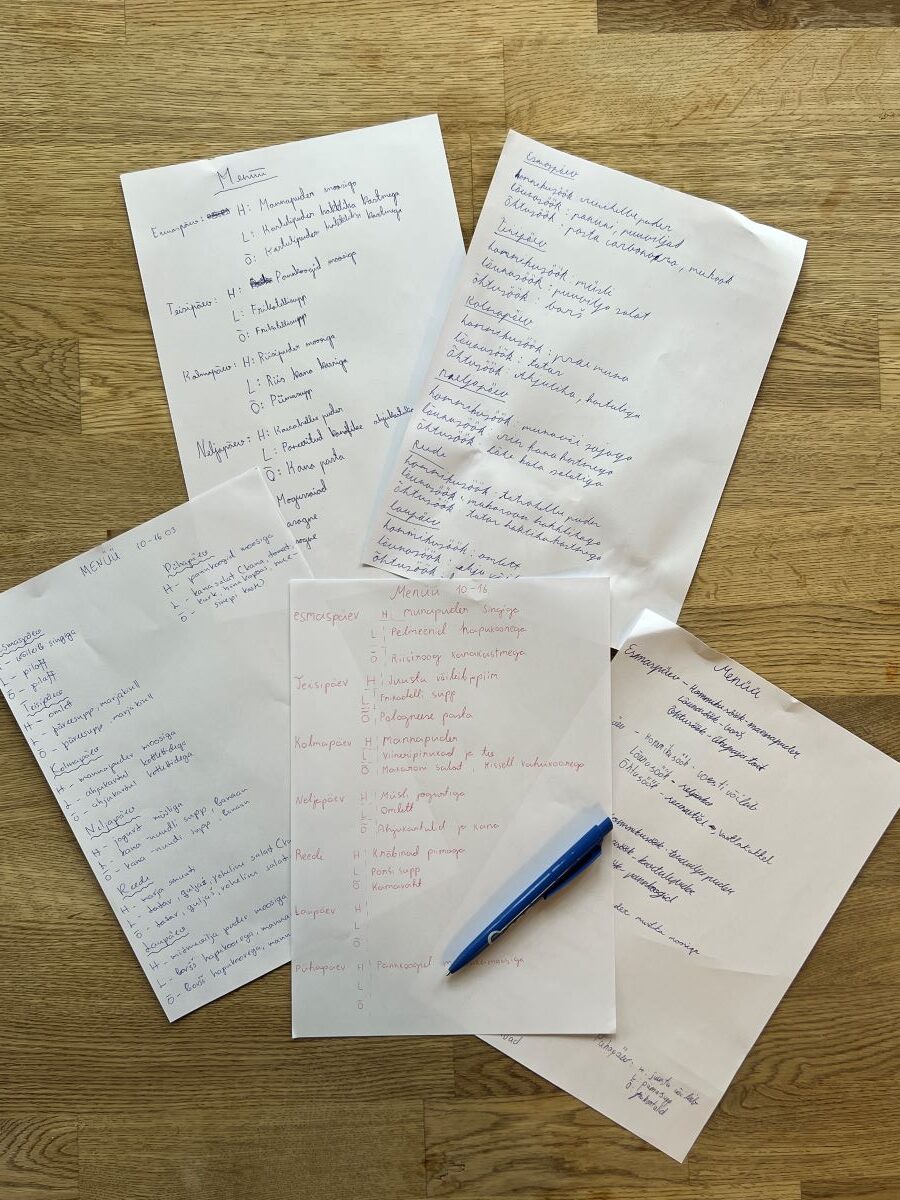 Menüü
Esmaspäev: H: Mannapuder moosiga
L: Kartulipuder hakkliha kastmega
Õ: Kartulipuder hakkliha kastmega
Teisipäev: H: Pannkoogid moosiga
L: Frikadellisupp
Õ: Frikadellisupp
Kolmapäev: H: Riisipuder moosiga
L: Riis kana karriga
Õ: Piimasupp
Neljapäev: H: Kaerahelbe puder
L: Paneeritud kanafilee
Õ: Kana pasta
Esmaspäev
puder
lõunasöök: panini, puuviljad
õhtusöök: pasta carbonara, mukook
Teisipäev
hommikusöök: müsli
lõunasöök: puuvilja salat
õhtusöök: borš
Kolmapäev
hommikusöök: praemuna
lõunasöök: tatar
õhtusöök: ahjuliha, kartuliga
Neljapäev
hommikusöök: munavõi saiaga
lõunasöök: riis kana kastmega
õhtusöök: kala salatiga
Reede
hommikusöök: tatrahelbe puder
lõunasöök: makaron hakklihaga
õhtusöök: tatar hakklihakastmega
Laupäev
hommikusöök: omlett
lõunasöök:
õhtusöök:
MENÜÜ 10-16.03
Esmaspäev
H - võileib singiga
L - pilaff
Õ - pilaff
Teisipäev
H - omlett
L - püreesupp, marjakisell
Õ - püreesupp, marjakisell
Kolmapäev
H - mannapuder moosiga
L - ahjukartul kotlettidega
Õ - ahjukartul kotlettidega
Neljapäev
H - jogurt müsliga
L - kana-nuudli supp, banaan
Õ - kana-nuudli supp, banaan
Reede
H - marja smuuti
L - tatar, guljaš, roheline salat
Õ - tatar, guljaš, roheline salat
Laupäev
H - mitmevilja puder moosiga
L - Borš hapukoorega,
Õ - Borš hapukoorega,
Pühapäev
H - pannkoogid moosiga
L - kanasalat (kana, tomat,
Õ -
Menüü 10-16
Esmaspäev H munapuder singiga
L Pelmeenid hapukoorega
Õ Riisiroog kanakastmega
Teisipäev H Juustu võileib, piim
L Frikadelli supp
Õ Bolognese pasta
Kolmapäev H Mannapuder
L Viineripirukad ja tee
Õ Makaroni salat, kissell vahukoorega
Neljapäev H Müsli jogurtiga
L Omlett
Õ Ahjukartulid ja kana
Reede H Krõbinad piimaga
L Borši supp
Õ Kamavaht
Laupäev H
L
Õ
Pühapäev H Pannkoogid
L
Õ
Menüü
Esmaspäev - Hommikusöök - mannapuder
Lõunasöök - borš
Õhtusöök -
- Hommikusöök - võileib
Lõunasöök -
Õhtusöök - , vastlakukkel
puder
kartulipuder
pannkoogid
moosiga
Pühapäev: H: juustu või leib
L: püreesupp
Õ: